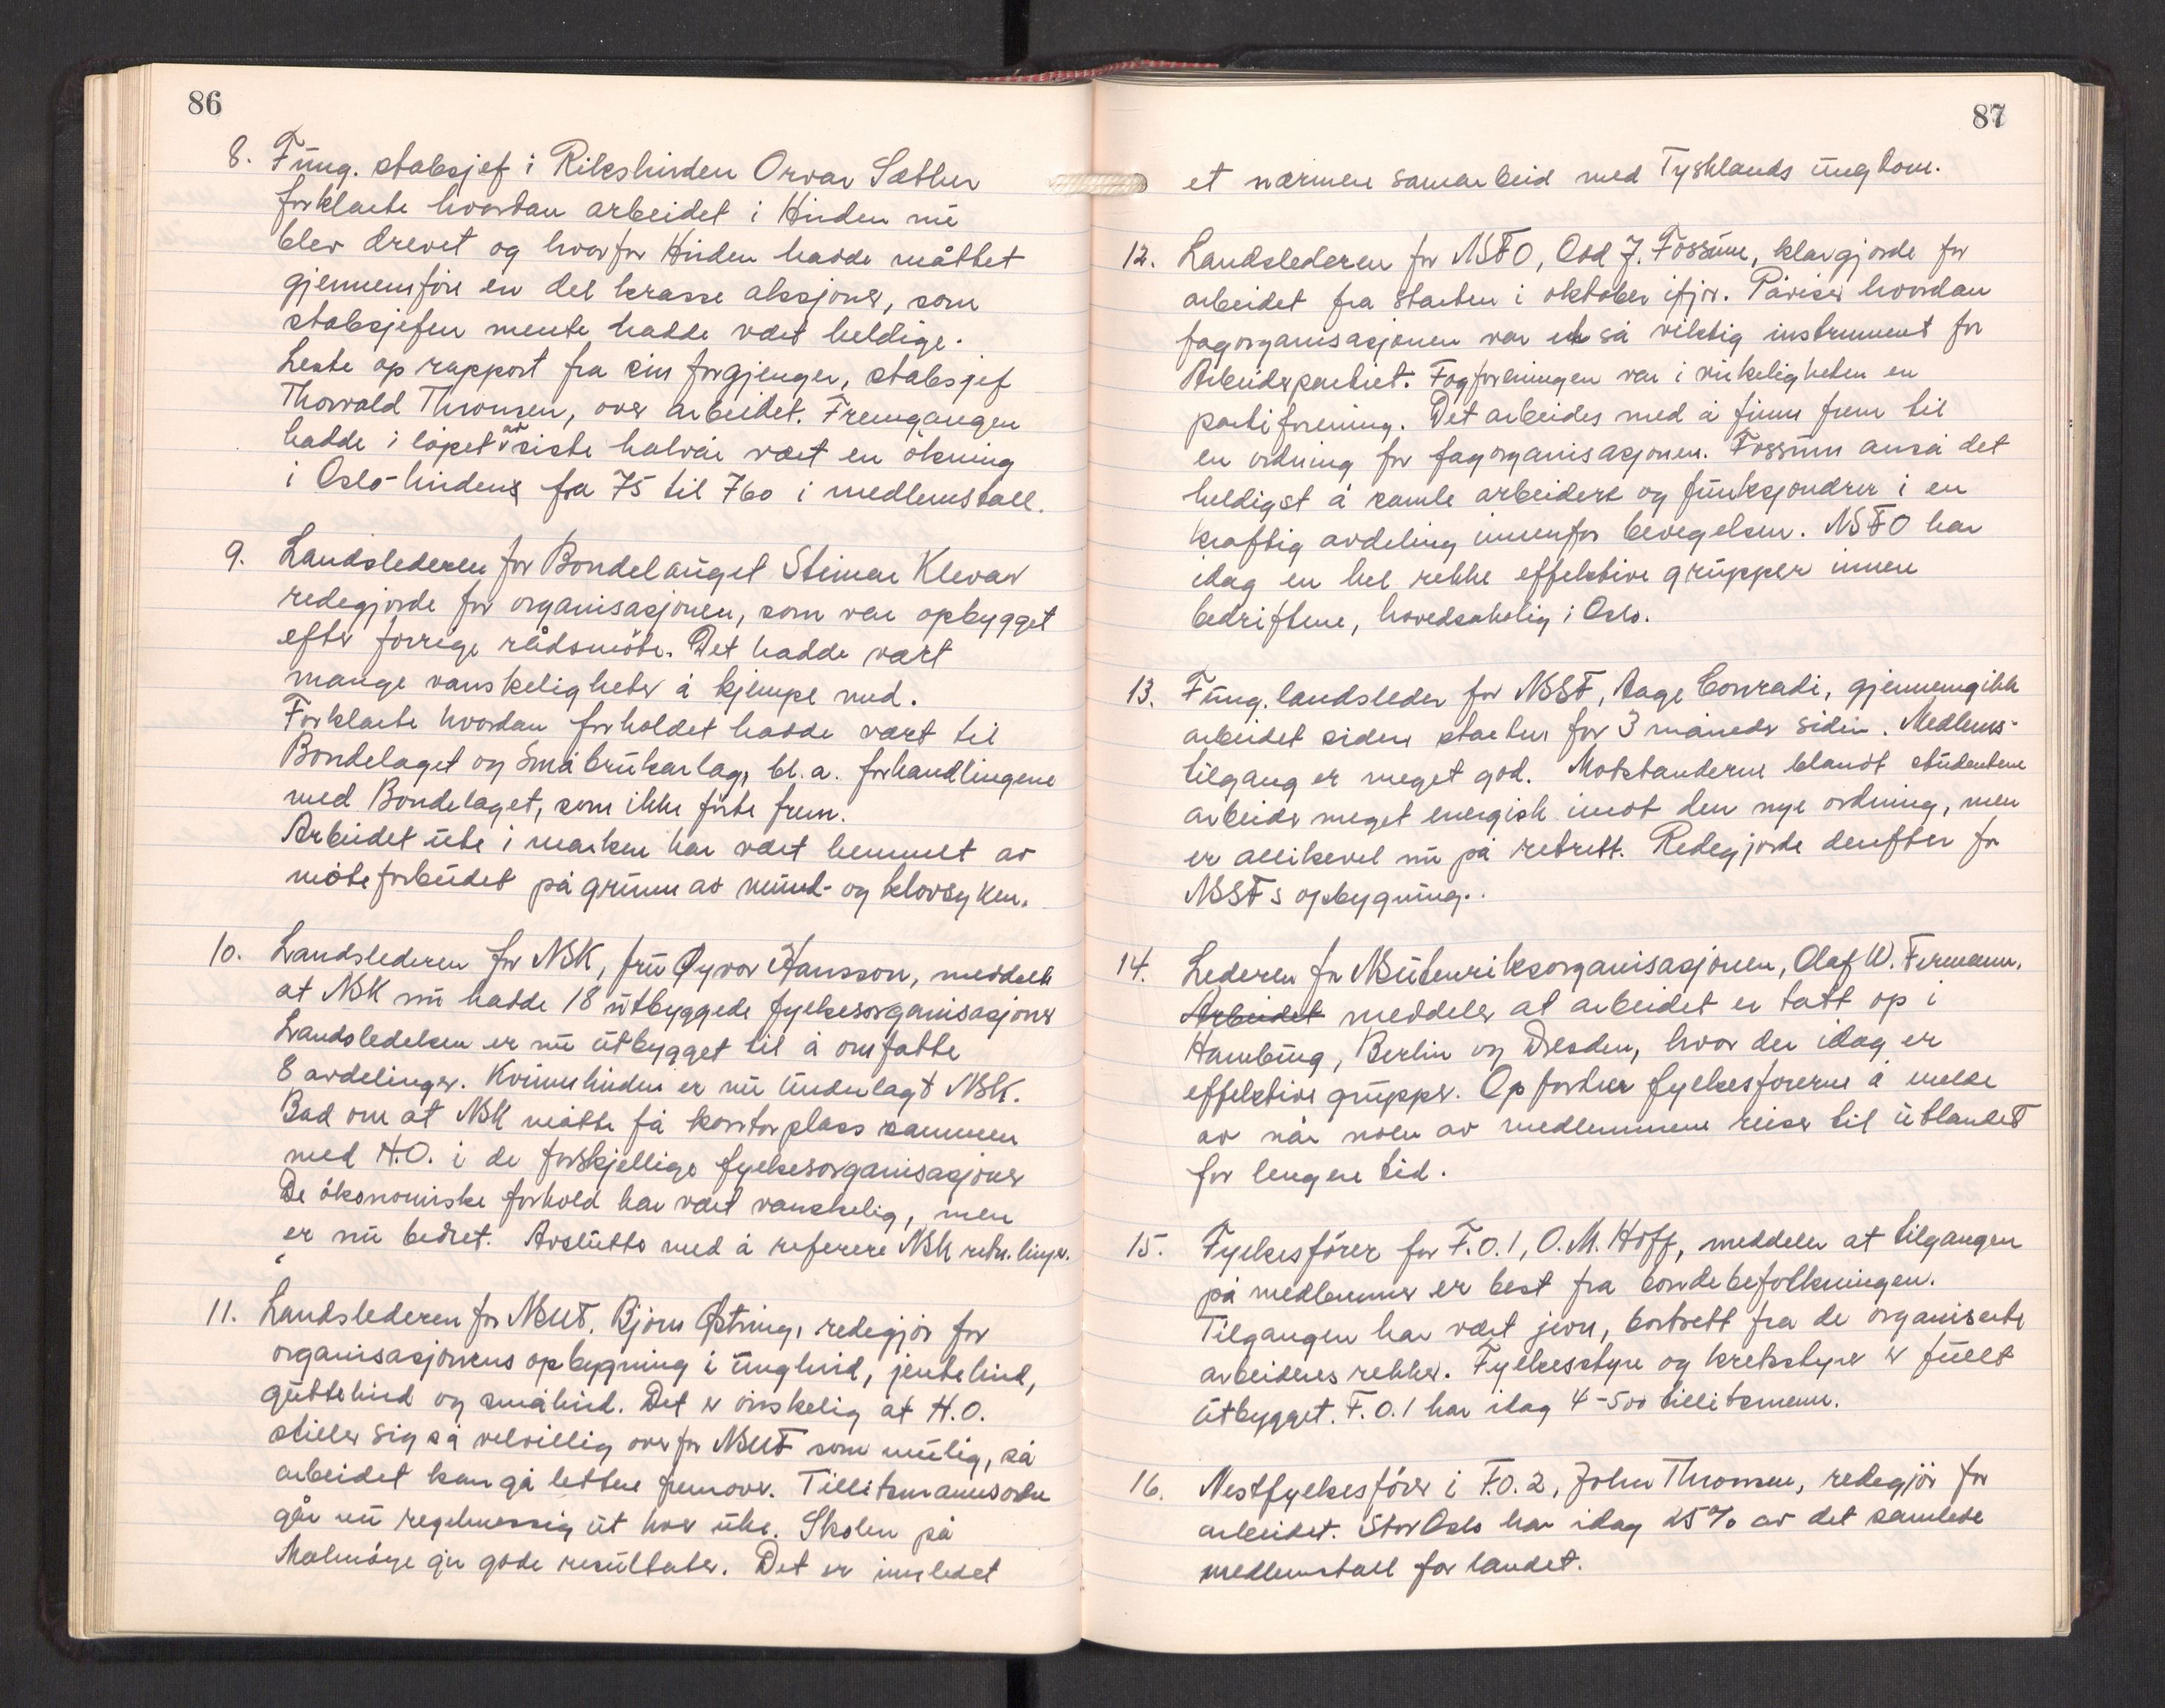 86
8. Fung. stabsjef i Rikshirden Orvar Sæther
forklarte hvordan arbeidet i Hirden nu
blev drevet og hvorfor Hirden hadde måttet
gjennemføre en del krasse aksjoner, som
stabsjefen mente hadde vært heldige.
Leste op rapport fra sin forgjenger, stabsjef
Thorvald Thronsen, over arbeidet. Fremgangen
hadde i löpet av siste halvår vært en ökning
i Oslo-hirdens fra 75 til 760 i medlemstall.
9. Landslederen for Bondelauget Steinar Klevar
redegjorde for organisasjonen, som var opbygget
efter forrige rådsmöte. Det hadde vært
mange vanskeligheter å kjempe med.
Forklarte hvordan forholdet hadde vært til
Bondelaget og Småbrukarlag, bl.a. forhandlingene
med Bondelaget, som ikke förte frem.
Arbeidet ute i marken har vært hemmet av
möteforbudet på grunn av munn- og klovsyken.
10. Landslederen for NSK, fru Øyvor Hansson, meddelte
at NSK nu hadde 18 utbyggede fylkesorganisasjoner
Landsledelsen er nu utbygget til å omfatte
8 avdelinger. Kvinnehirden er nu underlagt NSK.
Bad om at NSK måtte få kontorplass sammen
med H.O. i de forskjellige fylkesorganisasjoner
De ökonomiske forhold har vært vanskelig, men
er nu bedret. Avsluttet med å referere NSK retn.linjer.
11. Landslederen for NSUF. Bjørn Østring, redegjör for
organisasjonens opbygning i unghird, jentehird,
guttehird og småhird. Det er önskelig at H.O.
stiller sig så velvillig overfor NSUF som mulig, så
arbeidet kan gå lettere fremover. Tillitsmannsordre
går nu regelmessig ut hver uke. Skolen på
Malmöya gir gode resultater. Det er innledet
87
et nærmere samarbeid med Tysklands ungdom.
12. Landslederen for NSFO, Odd J. Fossum, klargjorde for
arbeidet fra starten i oktober ifjor. Påviser hvordan
fagorganisasjonen var et så viktig instrument for
Arbeiderpartiet. Fagforeningen var i virkeligheten en
partiforening. Det arbeides med å finne frem til
en ordning for fagorganisasjonen. Fossum anså det
heldigst å samle arbeidere og funksjonærer i en
kraftig avdeling innenfor bevegelsen. NSFO har
idag en hel rekke effektive grupper innen
bedriftene, hovedsakelig i Oslo.
13. Fung. landsleder for NSSF, Aage Conradi, gjennemgikk
arbeidet siden starten for 3 måneder siden. Medlems-
tilgang er meget god. Motstanderne blandt studentene
arbeider meget energisk imot den nye ordning, men
er allikevel nu på retrett. Redegjorde derefter for
NSSFs opbygning.
14. Lederen for NSutenriksorganisasjonen, Olaf W. Fermann.
Arbeidet meddeler at arbeidet er tatt op i
Hamburg, Berlin og Dresden, hvor der idag er
effektive grupper. Opfordrer fylkesförerne å melde
av når noen av medlemmene reiser til utlandet
for lengere tid.
15. Fylkesförer for F.O.1, O.M. Hoff, meddeler at tilgangen
på medlemmer er best fra bondebefolkningen.
Tilgangen har vært jevn, bortsett fra de organiserte
arbeideres rekker. Fylkesstyre og kretsstyrer er fullt
utbygget. F.O.1 har idag 4-500 tillitsmenn.
16. Nestfylkesförer i F.O.2, John Thronsen, redegjör for
arbeidet. Stor Oslo har idag 25% av det samlede
medlemstall for landet.